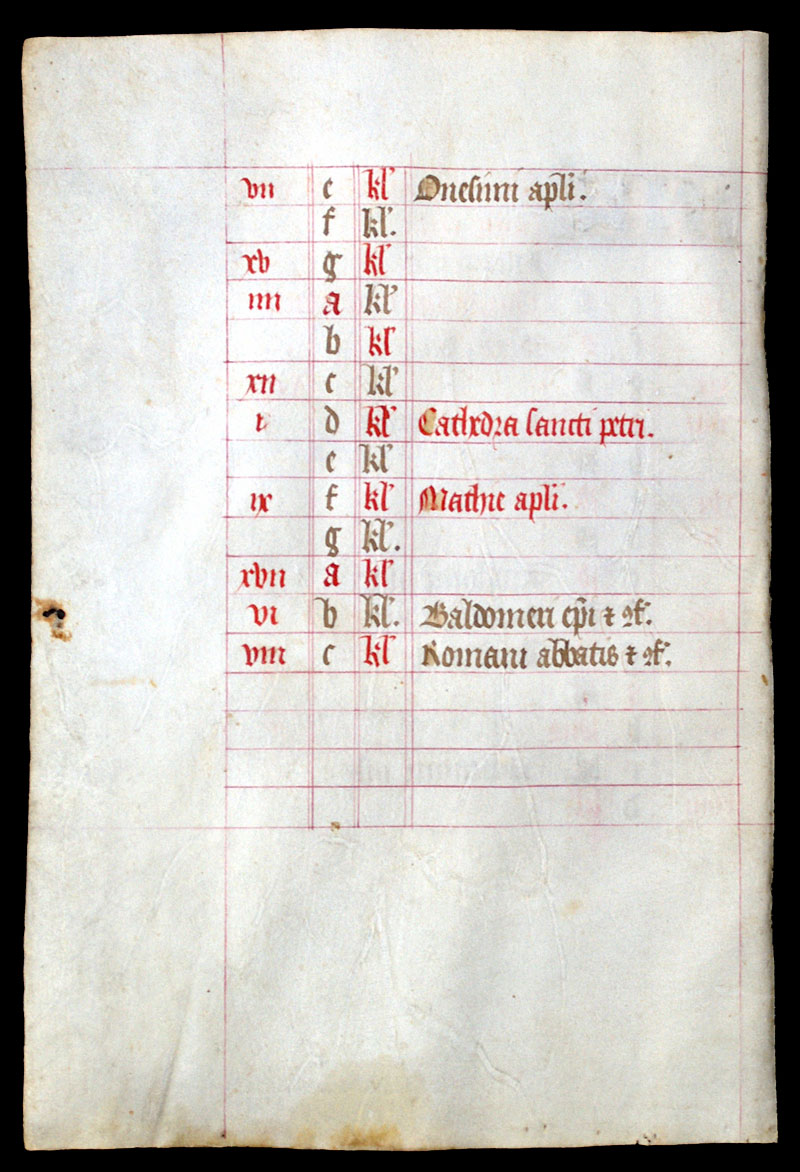 vii e kl' Onesimi apli.
f kl'.
xv g kl'
iiii a kl'
b kl'
xii c kl'
i d kl' Cathedra sancti petri.
e kl'
ix f kl' Mathie apli.
g kl'.
xvii a kl'
vi b kl'. Baldomeri epi ⁊ ꝯf.
viii c kl' Romani abbatis ⁊ ꝯf.